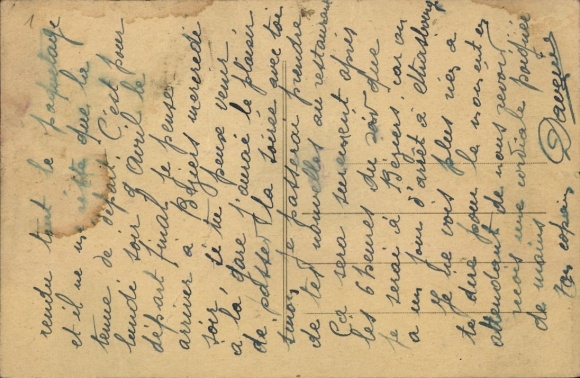 rendu tout le paquetage
et il ne me reste que la
tenue de départ. C'est pour
lundi soir 9 Avril le
départ final, je pense
arriver à Béziers mercredi
soir, si tu peux venir
à la gare j'aurai le plaisir
de passer la soirée avec toi
sinon je passerai prendre
de tes nouvelles au restaurant
Ça sera surement après
les 6 heures du soir que
je serai à Béziers car on
a un jour d'arrêt à Strasbourg
Je ne vois plus rien a
te dire pour le moment et
attendant de nous revoir
reçois une cordiale poignée
de mains
Ton copain